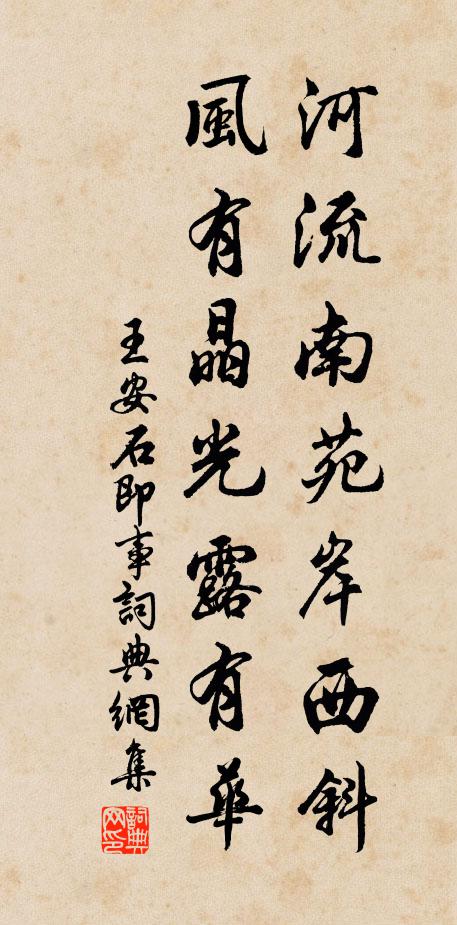 河流南苑岸西斜
風有晶光露有華
王安石即事詞典網集
詞典
网印